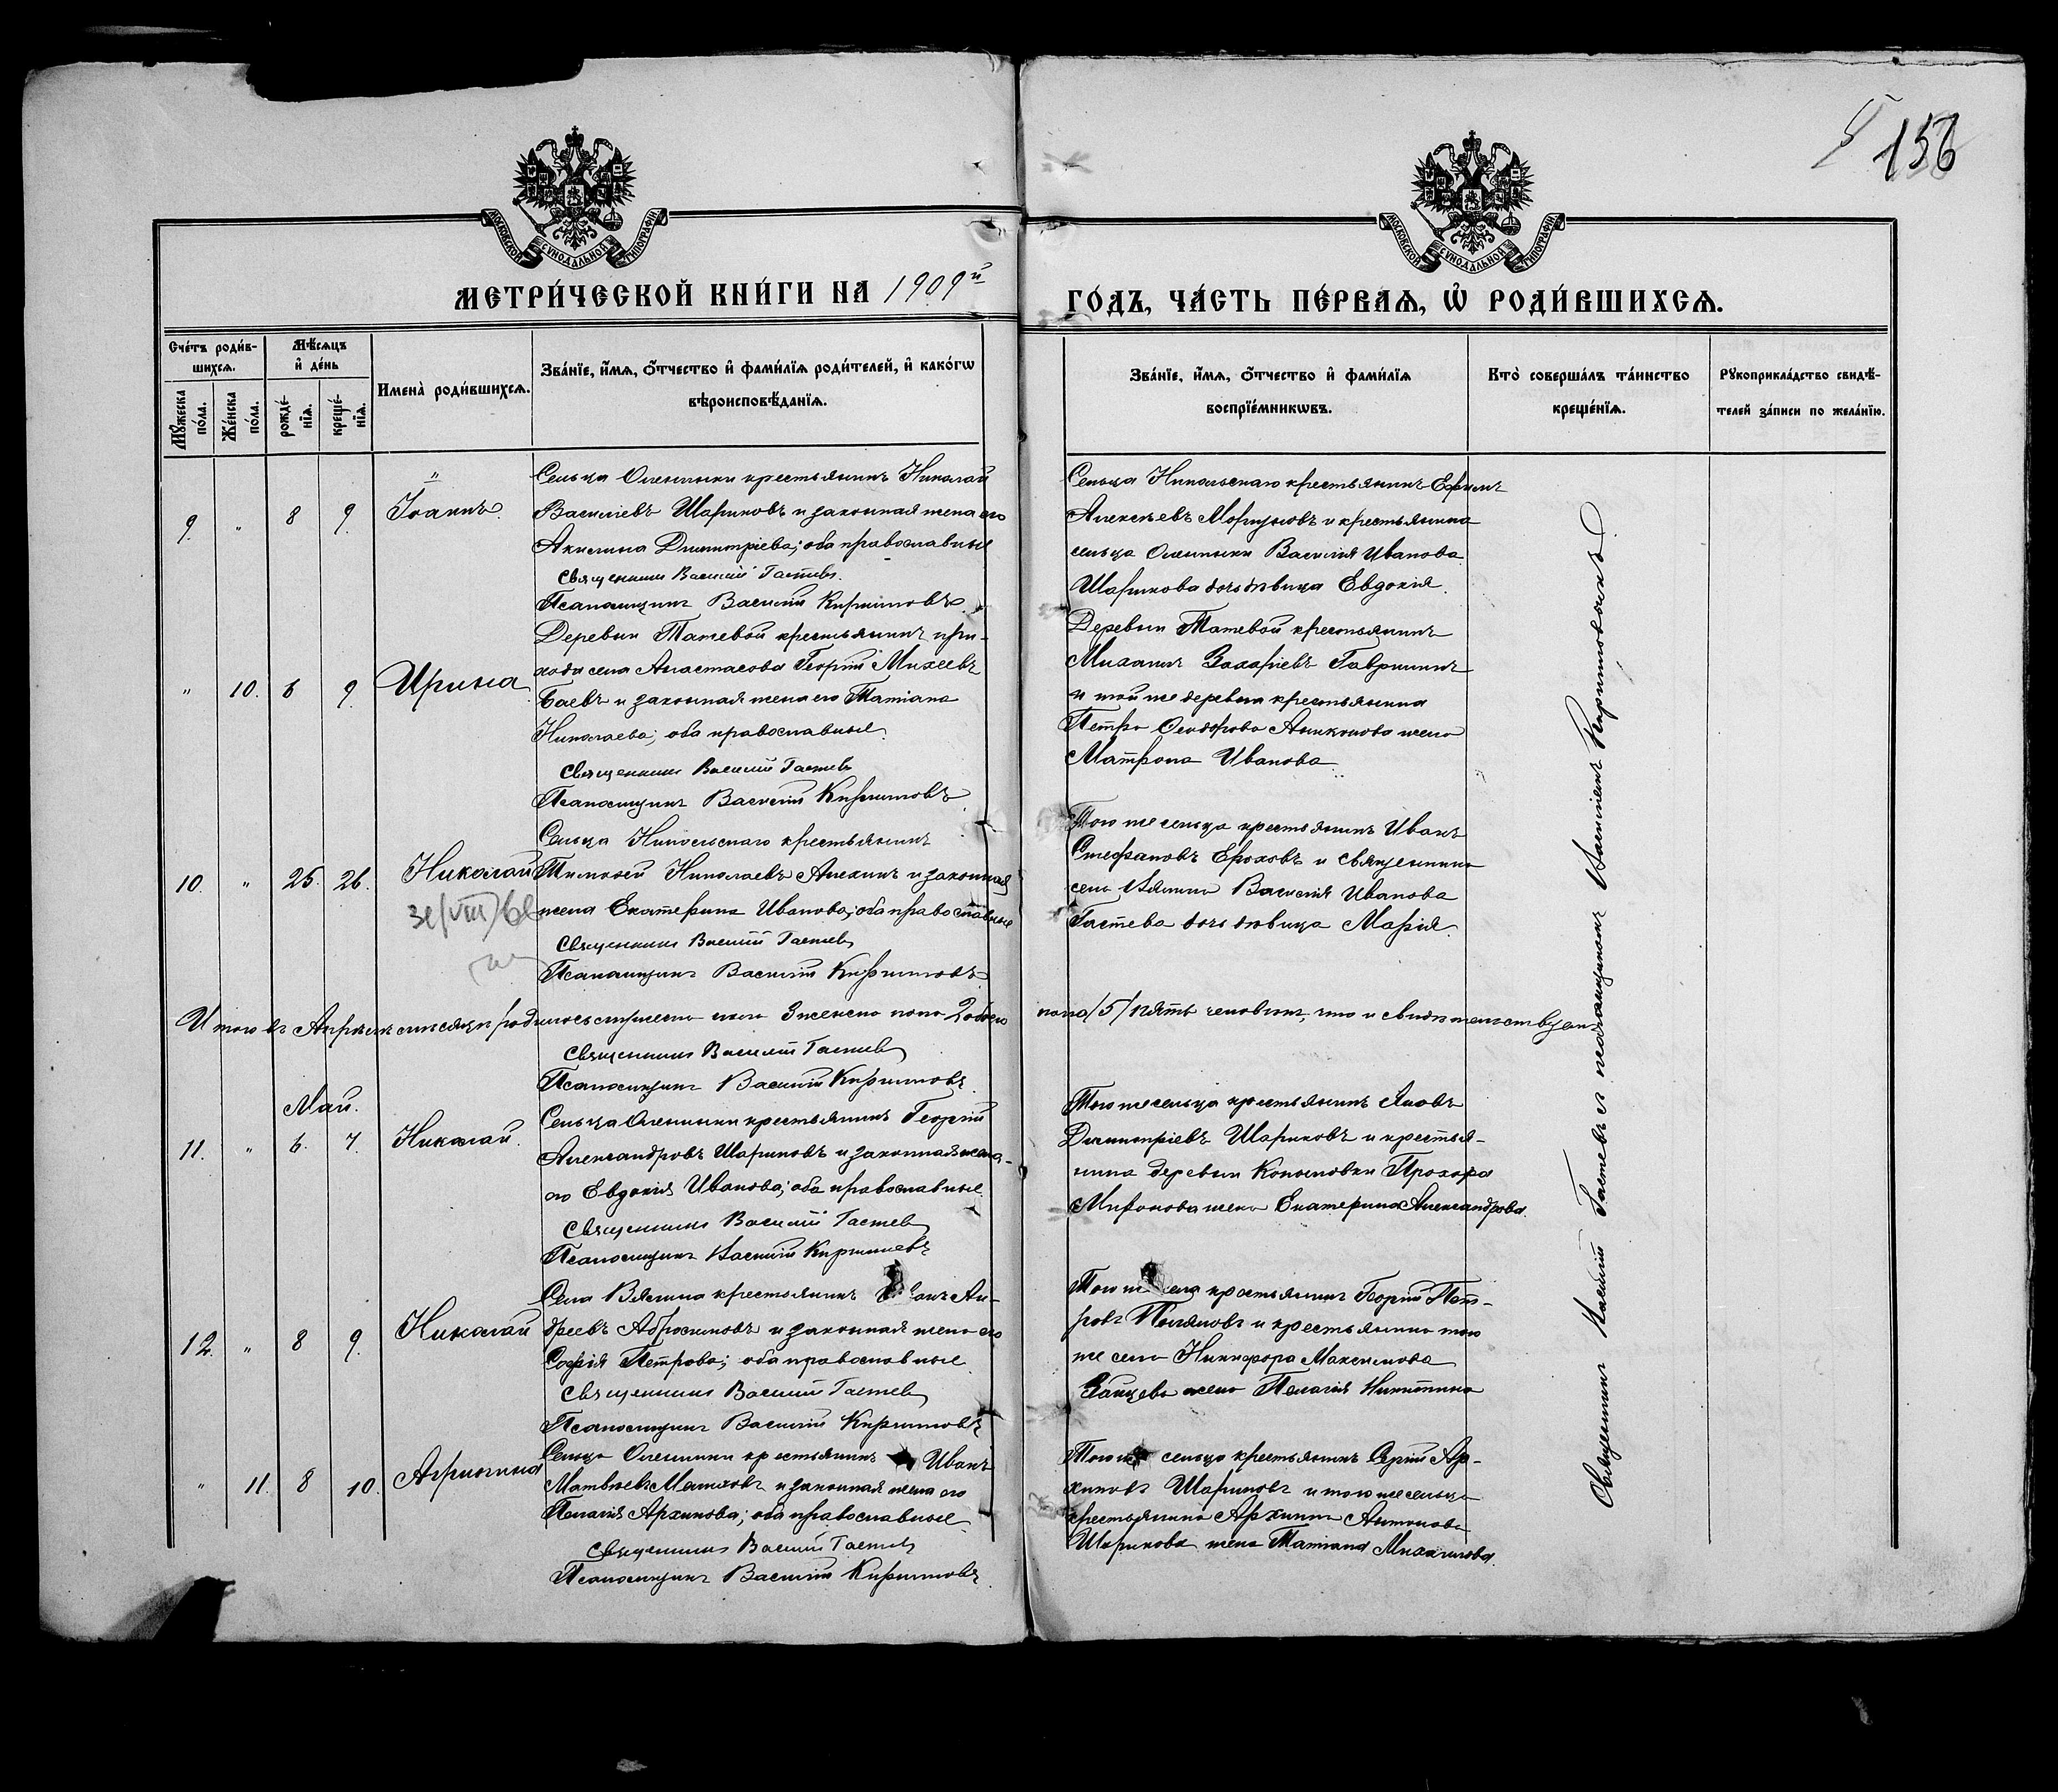 156
МОСКОВСКОЙ СѴНОДАЛЬНОЙ ТИПОГРАФІИ
МОСКОВСКОЙ СѴНОДАЛЬНОЙ ТИПОГРАФІИ
МЕТРИ́ЧЕСКОЙ КНИ́ГИ НА 1909й
ГО́ДЪ, ЧА́СТЬ ПЕ́РВАѦ, Ѽ РОДИ́ВШИХСѦ.
Сче́тъ роди́в-
шихсѧ.
Мѣ́сѧцъ
и҆ де́нь
Мꙋ́жеска по́ла.
Же́нска по́ла.
рожде́-
нїѧ.
креще́-
нїѧ.
Имена̀ роди́вшихсѧ.
Зва́нїе, и҆́мѧ, ѻ҆́тчество и҆ фами́лїѧ роди́телей, и҆ како́гѡ
вѣроисповѣ́данїѧ.
Зва́нїе, и҆́мѧ, ѻ҆́тчество и҆ фами́лїѧ
воспрїе́мникѡвъ.
Кто̀ соверша́лъ та́инство
креще́нїѧ.
Рꙋкоприкла́дство свидѣ́-
телей за́писи по жела́нїю.
9. " 8 9. Іоаннъ.
Сельца Оленинки крестьянинъ Николай
Василіевъ Шариковъ и законная жена его
Акилина Димитріева; оба православные
Священникъ Василій Гастевъ.
Псаломщикъ Василій Кирилловъ.
Сельца Никольскаго крестьянинъ Ефимъ
Алексѣевъ и крестьянина
сельца Оленинки Василія Иванова
Шарикова дочь дѣвица Евдокія.
" 10. 6 9. Ирина
Деревни Татевой крестьянинъ при-
хода села Анастасова Георгій Михеевъ
Баевъ и законная жена его Татіана
Николаева; оба православные.
Священникъ Василій Гастевъ
Псаломщикъ Василій Кирилловъ.
Деревни Татевой крестьянинъ
Михаилъ Захаріевъ Гаврилинъ
и той же деревни крестьянина
Петра Ѳеодорова жена
Матрона Иванова.
10. " 25. 26. Николай
Сельца Никольскаго крестьянинъ
Тимоѳей Николаевъ Алехинъ и законная
жена Екатерина Иванова; оба православные
Священникъ Василій Гастевъ
Псаломщикъ Василій Кирилловъ
Того же сельца крестьянинъ Иванъ
Стефановъ Ероховъ и священника
села Василія Иванова
Гастева дочь дѣвица Марія.
Итого въ Апрѣлѣ мѣсяцѣ родилось мужеска пола 3 женска пола 2 обоего
пола /5/ пять человѣкъ, что и свидѣтельствуемъ
Священникъ Василій Гастевъ
Псаломщикъ Василій Кирилловъ.
Май.
11. " 6. 7. Николай.
Сельца Оленинки крестьянинъ Георгій
Александровъ Шариковъ и законная жена
его Евдокія Иванова; оба православные.
Священникъ Василій Гастевъ
Псаломщикъ Василій Кирилловъ
Того же сельца крестьянинъ Яковъ
Димитріевъ Шариковъ и крестья-
нина деревни Прохора
Миронова жена Екатерина Александрова.
12. " 8 9. Николай
Села крестьянинъ Ан-
дреевъ Абросимовъ и законная жена его
Софія Петрова; оба православные
Священникъ Василій Гастевъ
Псаломщикъ Василій Кирилловъ
Того же села крестьянинъ Георгій Пет-
ровъ Поляковъ и крестьянина того
же села Никифора Максимова
Зайцева жена Пелагія Никитина
" 11. 8 10. Агриппина
Сельца Оленинки крестьянинъ Иванъ
Матвѣевъ и законная жена его
Пелагія Архипова; оба православные.
Священникъ Василій Гастевъ
Псаломщикъ Василій Кирилловъ.
Того же сельца крестьянинъ Сергій Ар-
хиповъ Шариковъ и того же сельца
крестьянина Архипа Антонова
Шарикова жена Татіана Михаилова.
Священникъ Василій Гастевъ съ псаломщикомъ Василіемъ Кирилловымъ